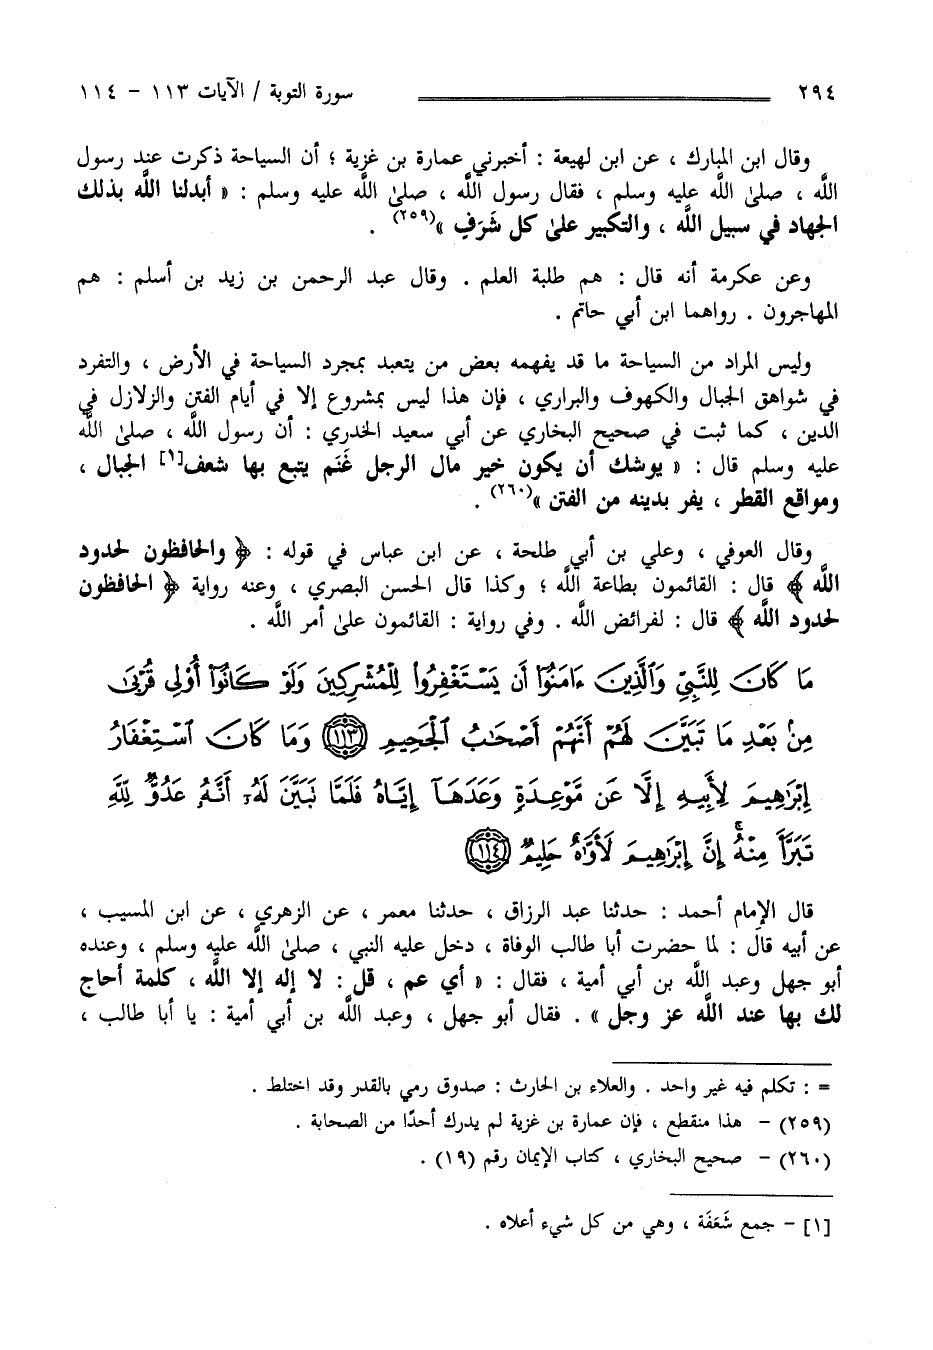 ٢٩٤ سورة التوبة / الآيات ١١٣ - ١١٤
وقال ابن المبارك ، عن ابن لهيعة : أخبرني عمارة بن غزية ؛ أن السياحة ذكرت عند رسول
الله ، صلىٰ الله عليه وسلم ، فقال رسول الله ، صلىٰ الله عليه وسلم : « أبدلنا الله بذلك
الجهاد في سبيل الله ، والتكبير علىٰ كل شَرَفٍ »(٢٥٩) .
وعن عكرمة أنه قال : هم طلبة العلم . وقال عبد الرحمن بن زيد بن أسلم : هم
المهاجرون . رواهما ابن أبي حاتم .
وليس المراد من السياحة ما قد يفهمه بعض من يتعبد بمجرد السياحة في الأرض ، والتفرد
في شواهق الجبال والكهوف والبراري ، فإن هذا ليس بمشروع إلا في أيام الفتن والزلازل في
الدين ، كما ثبت في صحيح البخاري عن أبي سعيد الخدري : أن رسول الله ، صلىٰ الله
عليه وسلم قال : « يوشك أن يكون خير مال الرجل غَنَم يتبع بها شعف[١] الجبال ،
ومواقع القطر ، يفر بدينه من الفتن »(٢٦٠) .
وقال العوفي ، وعلي بن أبي طلحة ، عن ابن عباس في قوله : ﴿ والحافظون لحدود
الله ﴾ قال : القائمون بطاعة الله ؛ وكذا قال الحسن البصري ، وعنه رواية ﴿ الحافظون
لحدود الله ﴾ قال : لفرائض الله . وفي رواية : القائمون علىٰ أمر الله .
مَا كَانَ لِلنَّبِيِّ وَٱلَّذِينَ ءَامَنُوٓا۟ أَن يَسْتَغْفِرُوا۟ لِلْمُشْرِكِينَ وَلَوْ كَانُوٓا۟ أُو۟لِى قُرْبَىٰ
مِنۢ بَعْدِ مَا تَبَيَّنَ لَهُمْ أَنَّهُمْ أَصْحَٰبُ ٱلْجَحِيمِ ١١٣ وَمَا كَانَ ٱسْتِغْفَارُ
إِبْرَٰهِيمَ لِأَبِيهِ إِلَّا عَن مَّوْعِدَةٍ وَعَدَهَآ إِيَّاهُ فَلَمَّا تَبَيَّنَ لَهُۥٓ أَنَّهُۥ عَدُوٌّ لِّلَّهِ
تَبَرَّأَ مِنْهُ ۚ إِنَّ إِبْرَٰهِيمَ لَأَوَّٰهٌ حَلِيمٌ ١١٤
قال الإمام أحمد : حدثنا عبد الرزاق ، حدثنا معمر ، عن الزهري ، عن ابن المسيب ،
عن أبيه قال : لما حضرت أبا طالب الوفاة ، دخل عليه النبي ، صلىٰ الله عليه وسلم ، وعنده
أبو جهل وعبد الله بن أبي أمية ، فقال : « أي عم ، قل : لا إله إلا الله ، كلمة أحاج
لك بها عند الله عز وجل » . فقال أبو جهل ، وعبد الله بن أبي أمية : يا أبا طالب ،
= : تكلم فيه غير واحد . والعلاء بن الحارث : صدوق رمي بالقدر وقد اختلط .
(٢٥٩) - هذا منقطع ، فإن عمارة بن غزية لم يدرك أحدًا من الصحابة .
(٢٦٠) - صحيح البخاري ، كتاب الإيمان رقم (١٩) .
[١] - جمع شَعَفَة ، وهي من كل شيء أعلاه .